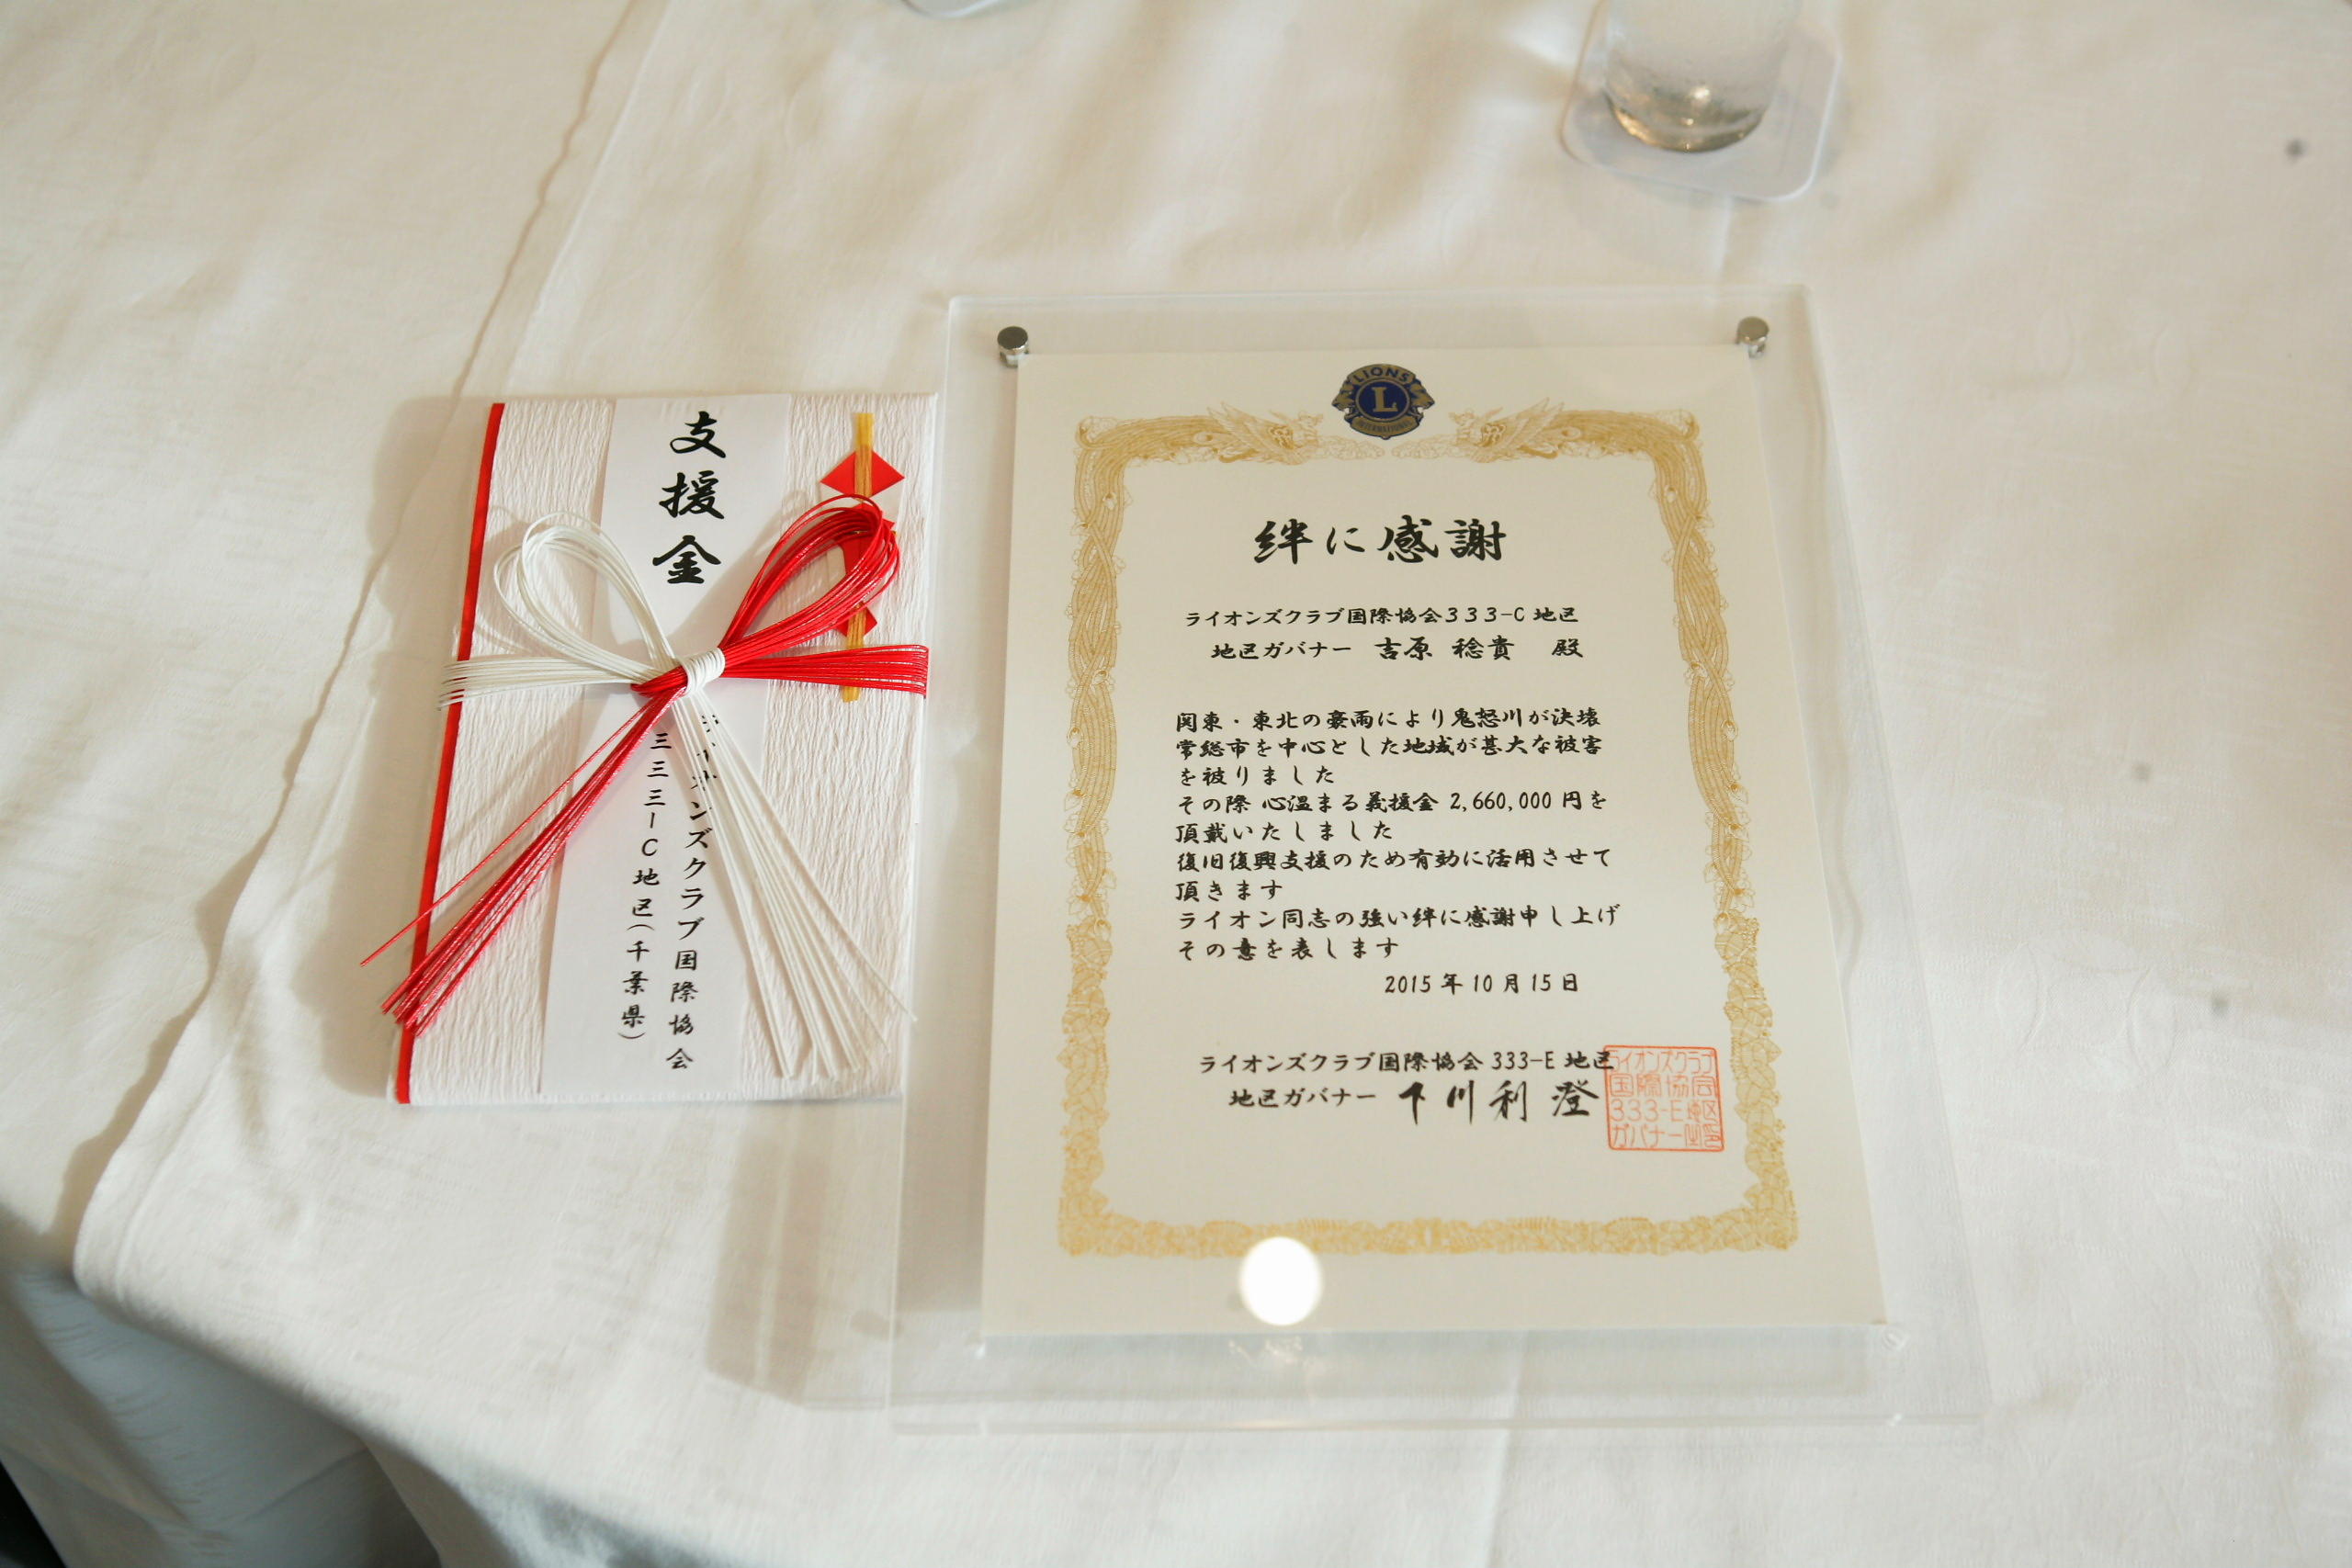 支援金
ライオンズクラブ国際協会
三三三-C地区(千葉県)
LIONS
L
INTERNATIONAL
絆に感謝
ライオンズクラブ国際協会333-C 地区
地区ガバナー 吉原 稔貴 殿
関東・東北の豪雨により鬼怒川が決壊
常総市を中心とした地域が甚大な被害
を被りました
その際 心温まる義援金 2,660,000 円を
頂戴いたしました
復旧復興支援のため有効に活用させて
頂きます
ライオン同志の強い絆に感謝申し上げ
その意を表します
2015 年 10 月 15 日
ライオンズクラブ国際協会 333-E 地区
地区ガバナー 下川利澄
ライオンズクラブ
国際協会
333-E地区
ガバナー